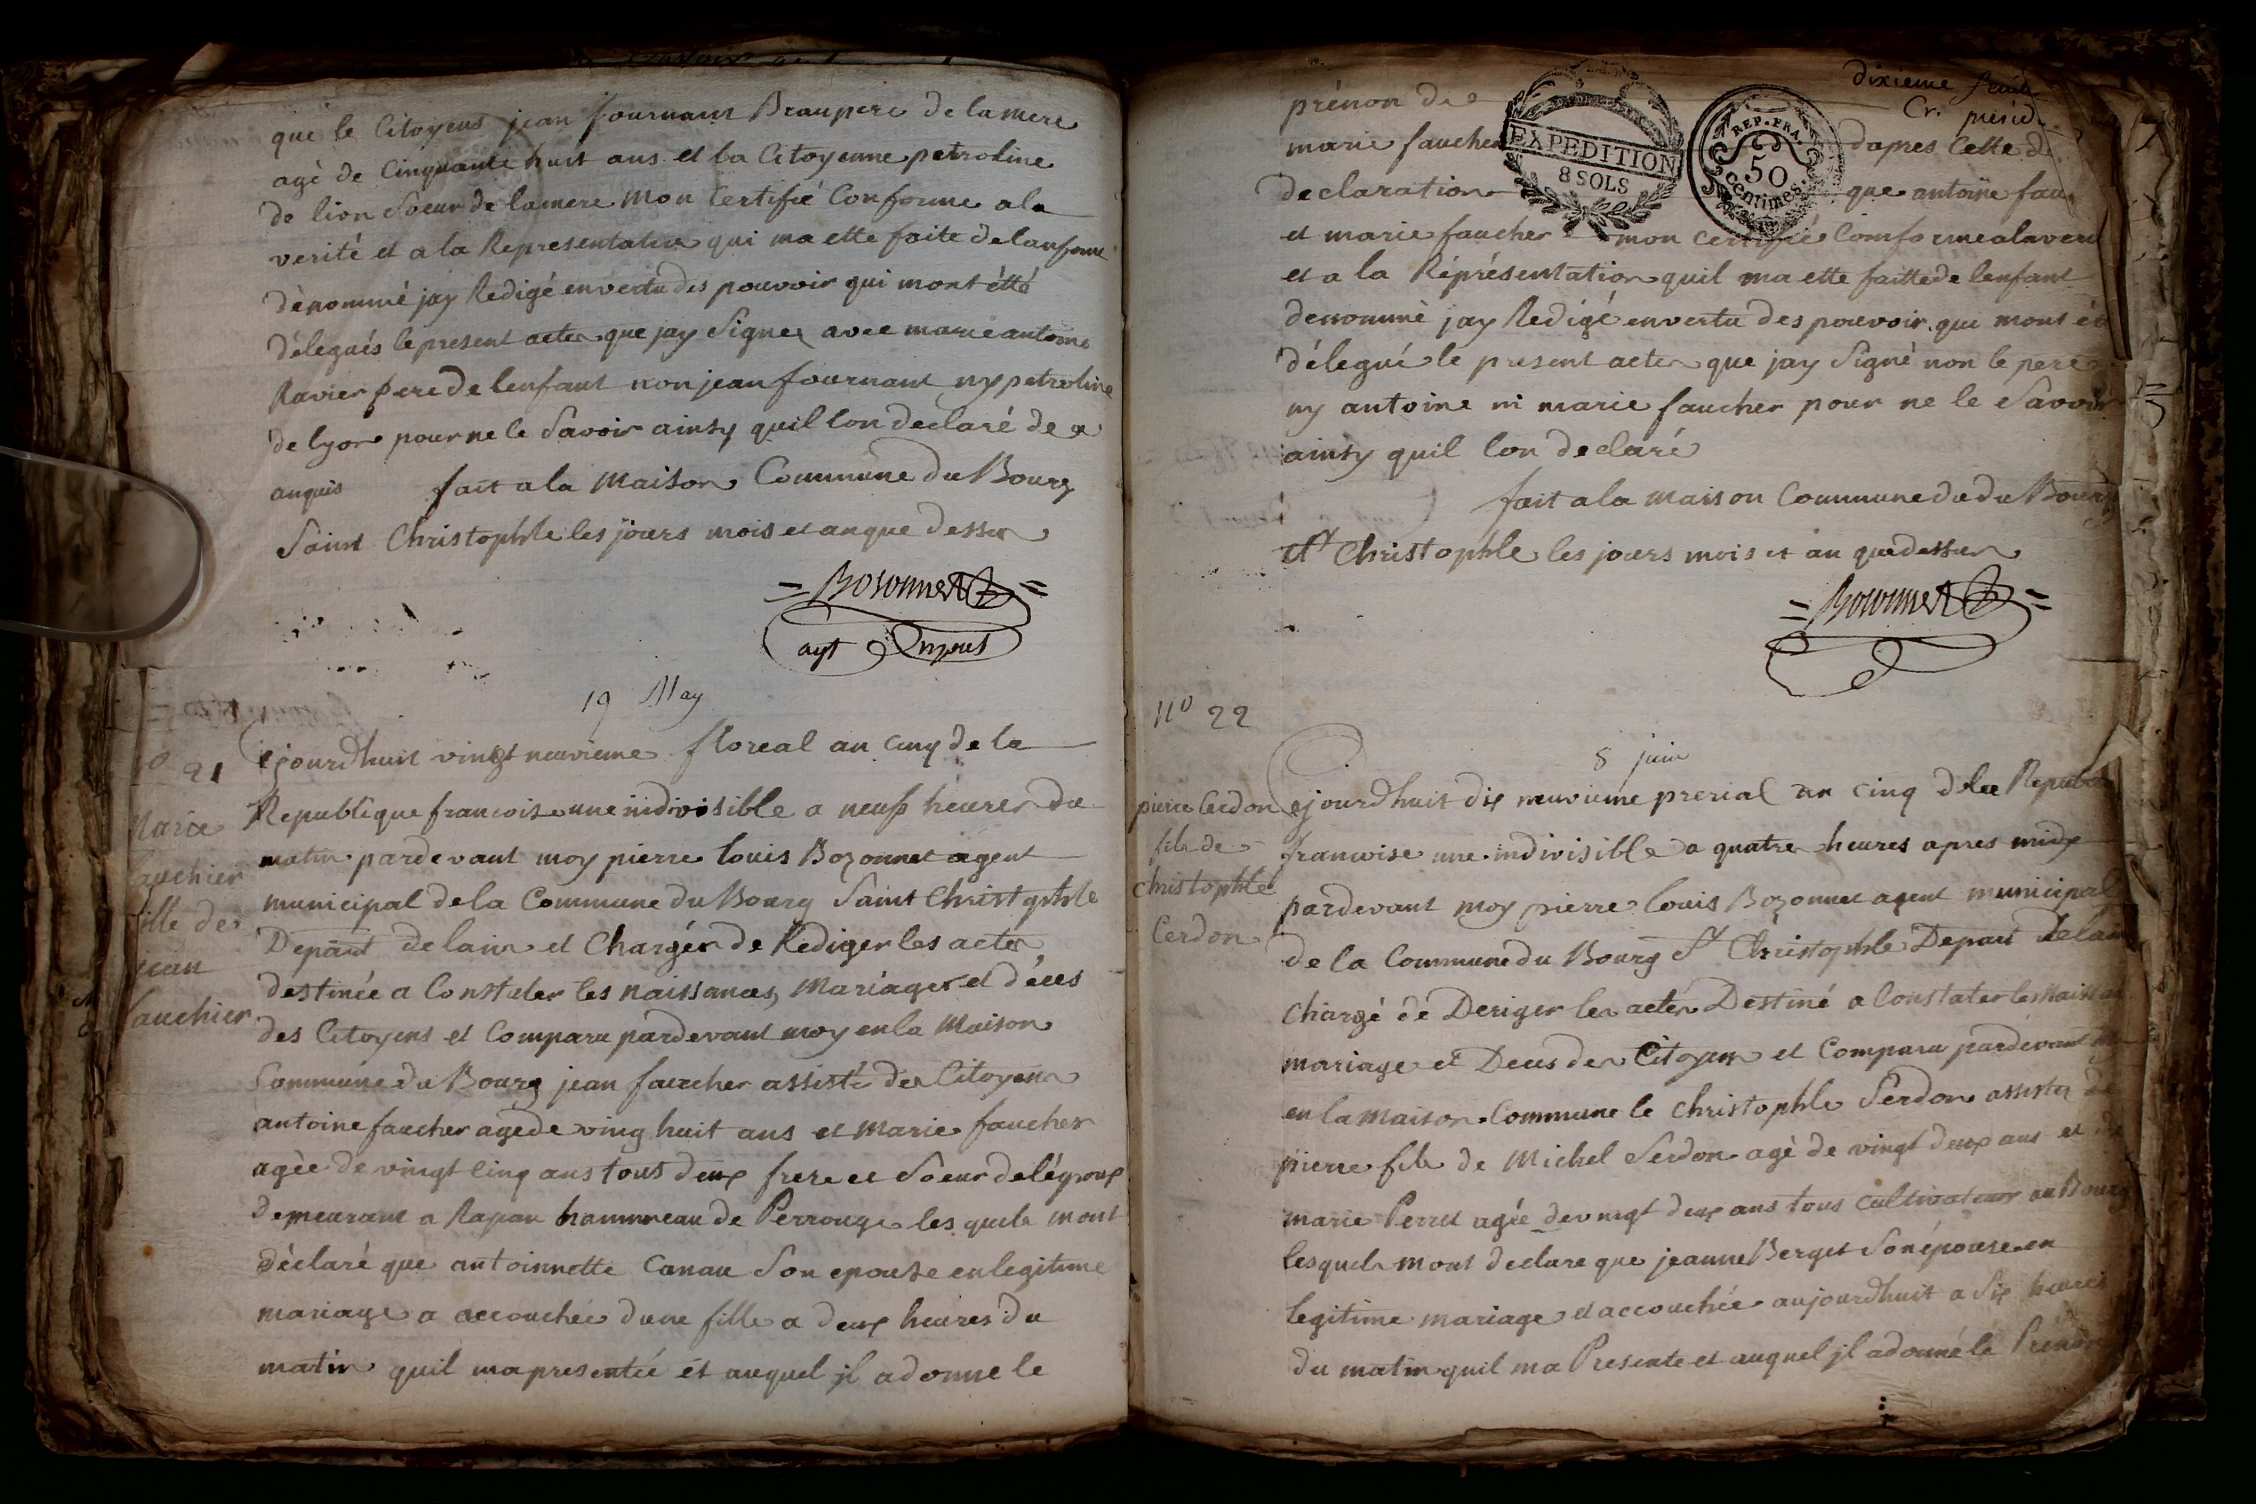 que le Citoyens jean fournant Beaupere de lamere
agé de Cinquante huit ans et la Citoyenne petroline
de lion Soeur de lamere mon Certifié Conforme a la
verité et a la Representation qui ma ette faite de lanfant
dénommé jay Redigé envertu des pouvoir qui mont étté
délegués le present acte que jay Signer avec marie antoine
Ravier pere de lenfant non jean fournant ny petroline
de lyon pour ne le Savoir ainsy quil lon declaré de ce
anquis fait a la Maison Commune du Bourg
Saint Christophle les jours mois et an que dessu
= Bozonnet =
agt
19 May
Cejourdhuit vingt neuvieme floreal an cinq de la
Republique francoise une indivisible a neuf heures du
matin pardevant moy pierre louis Bozonnet agent
municipal de la Commune du Bourg Saint Christophle
Depart de lain et Chargér de Rediger les actes
destinée a Constater les Naissances, Mariages et déces
des Citoyens et Comparu pardevant moy en la Maison
Commune du Bourg jean faucher assisté des Citoyens
antoine faucher agé de ving huit ans et Marie faucher
agée de vingt cinq ans tous deux frere et Soeur de légroux
Demeurant a Rapan hammeau de Perrouge les quels mont
déclaré que antoinnette Canau Son epouse en legitime
mariage a accouchée dune fille a deux heures du
matin quil ma presentée et auquel jl a donne le
21
Marie
fauchier
fille de
jean
fauchier
dixieme feuil
Cr. présid
prénon de
marie faucher dapres Cette d
EXPEDITION
8 SOLS
REP. FRA.
50
centimes.
declaration que antoine fau
et marie faucher mon certifié Comforme a la veri
et a la Réprésentation quil ma ette faitte de lenfant
denommé jay Redigé en vertu des pouvoir que mont ét
délegué le present acte que jay Signé non le pere
ny antoine ni marie faucher pour ne le Savoir
ainsy quil lon declaré
fait a la maison Commune du du Bourg
St Christophle les jours mois et an que dessu
= Bozonnet =
No 22
pierre Cerdon
fils de
christophle
Cerdon
8 juin
Cejourdhuit dix neuvieme prerial an cinq de la Republi
francoise une indivisible a quatre heures apres midy
pardevant moy pierre louis Bozonnet agent municipal
de la Commune du Bourg St Christophle Depart de lain
chargé de Deriger les actes Destiné a Constater les Naissan
mariage et Deces des Citoyens et Comparu pardevant
en la maison Commune le christophle Serdon assister de
pierre fils de Michel Serdon agé de vingt deux ans et de
marie Perret agée de vingt deux ans tous cultivateur au Bourg
lesquels mont declare que jeanne Berget Son épouse en
legitime mariage et accouchée aujourdhuit a Six heures
du matin quil ma Presente et auquel jl a donné le Prénon